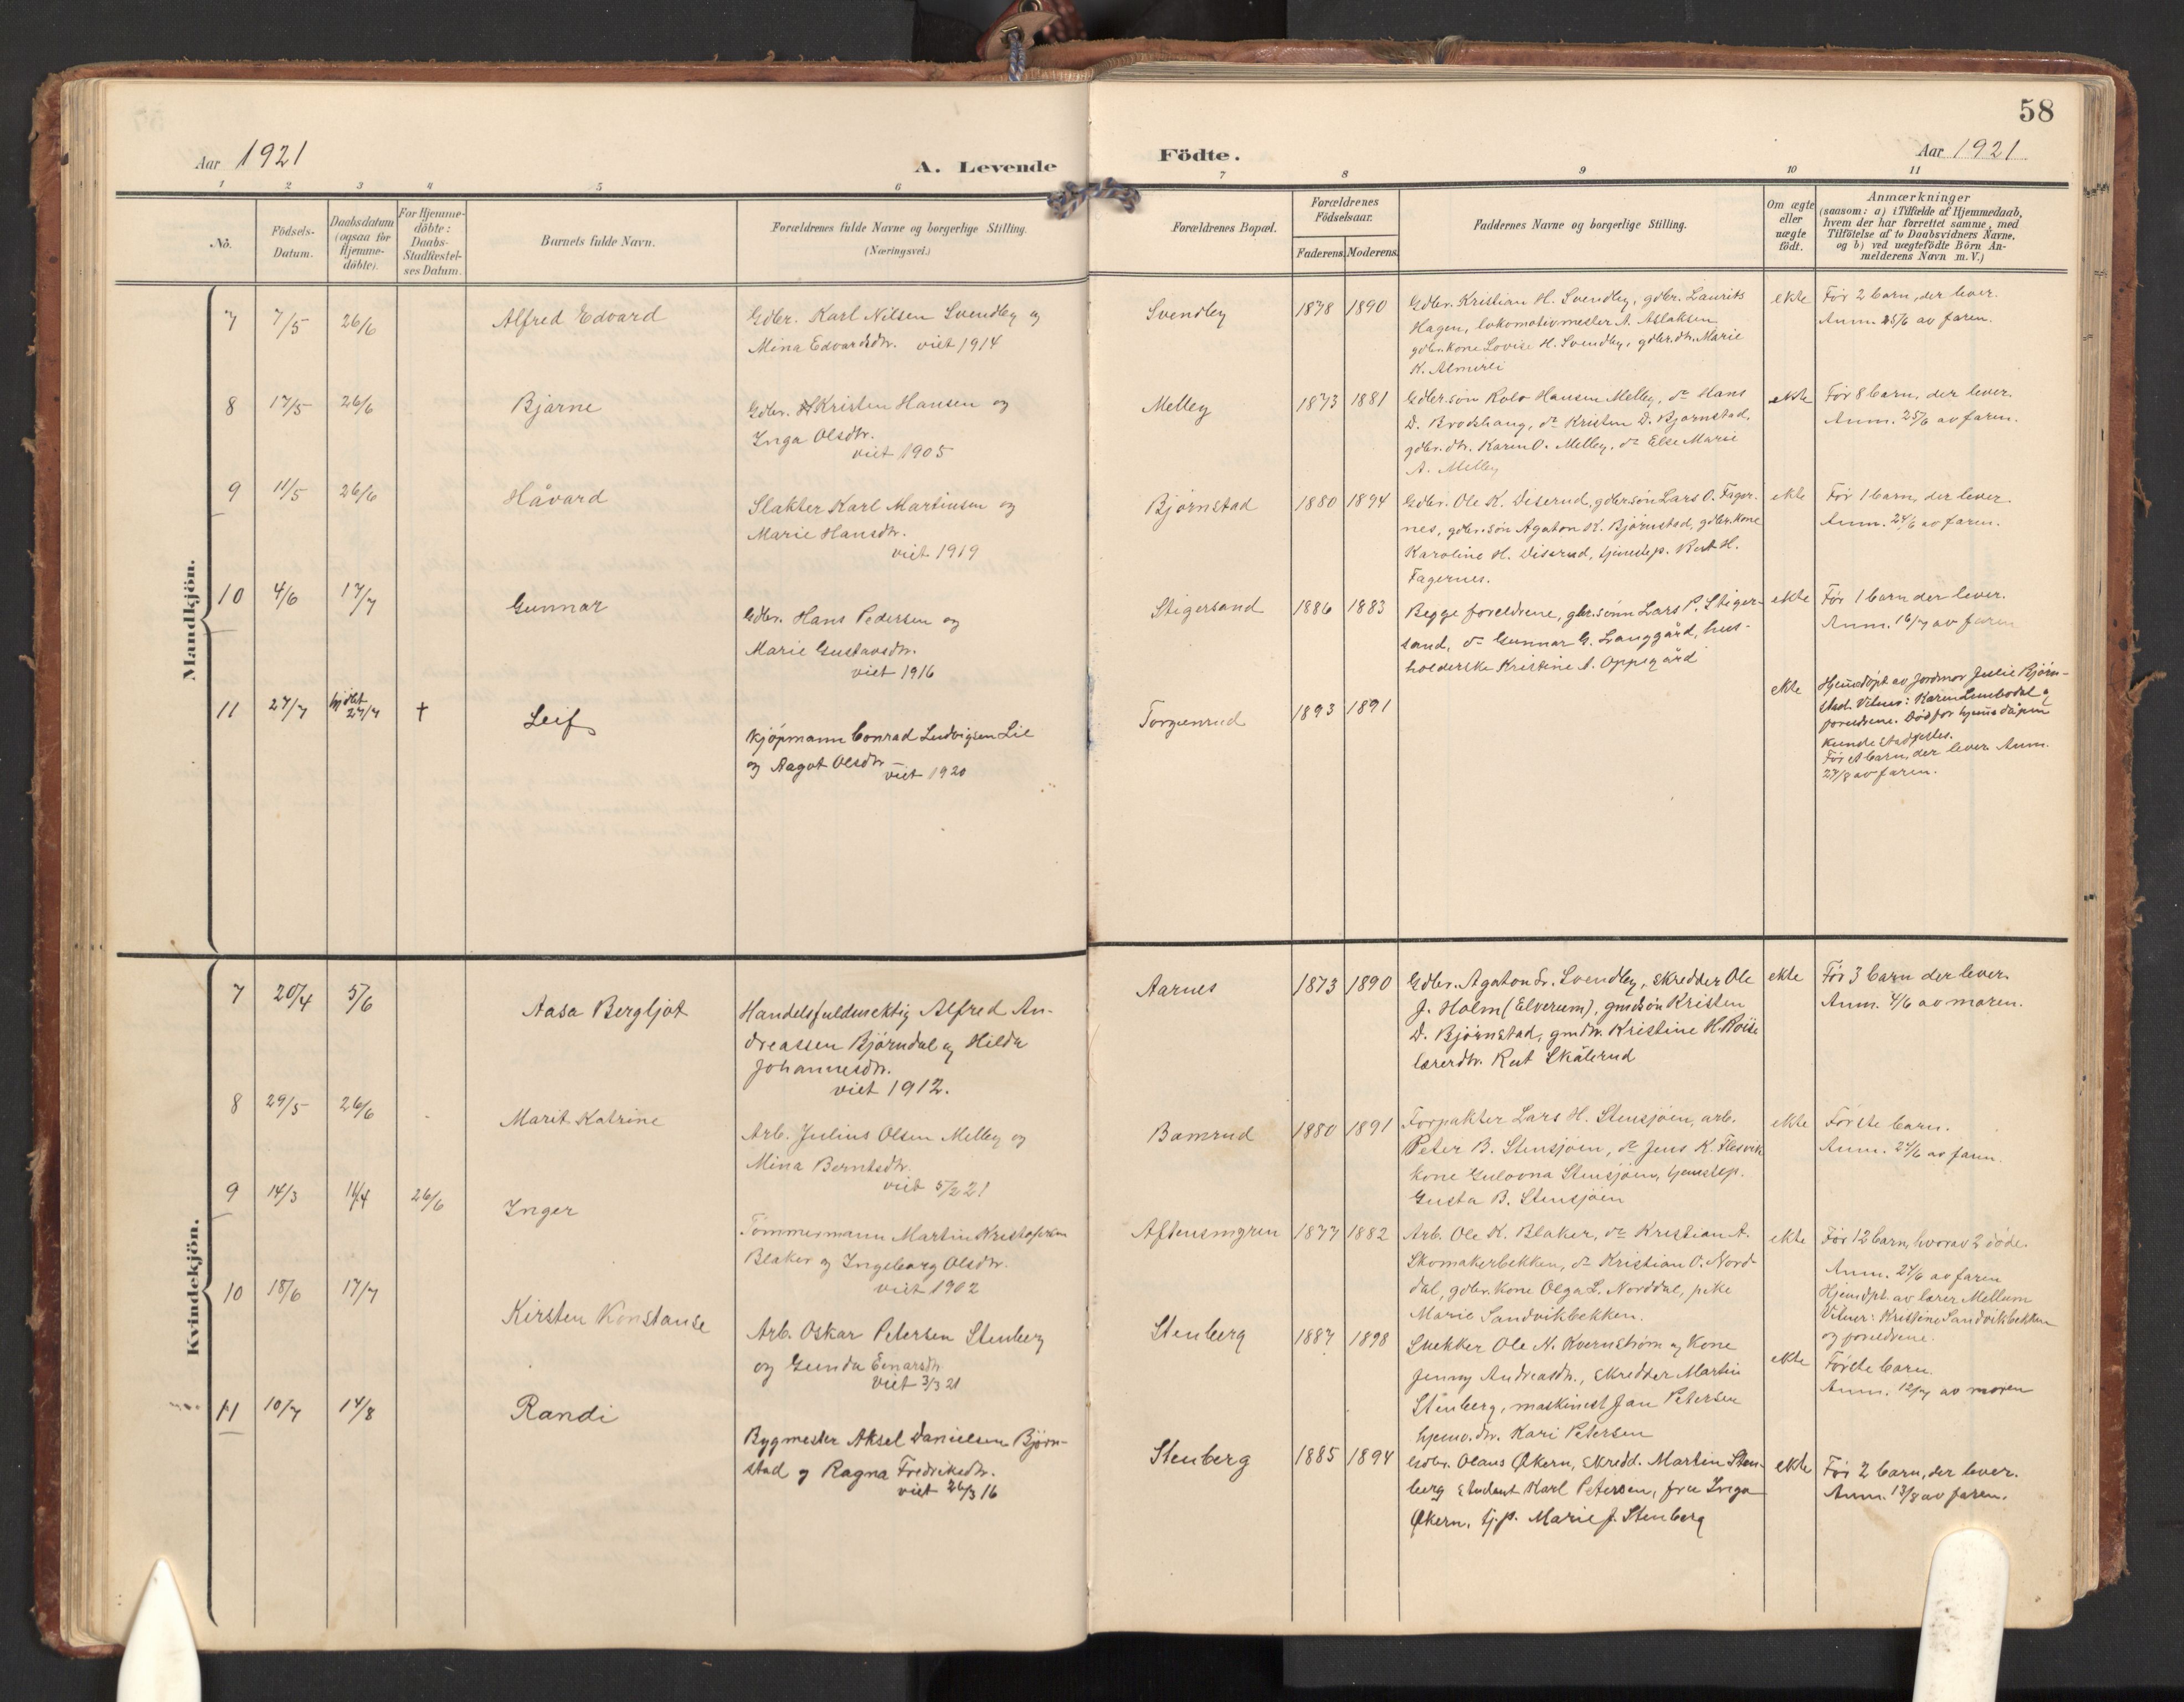 58
Aar 1921
A. Levende
Födte.
Aar 1921
1 2 3 4 5 6 7 8 9 10 11
No.
Födsels-
Datum.
Daabsdatum
(ogsaa for
Hjemme-
döbte).
For Hjemme-
döbte:
Daabs-
Stadfæstel-
ses Datum.
Barnets fulde Navn.
Forældrenes fulde Navne og borgerlige Stilling.
(Næringsvei.)
Forældrenes Bopæl.
Forældrenes
Födselsaar.
Faderens. Moderens.
Faddernes Navne og borgerlige Stilling.
Om ægte
eller
uægte
födt.
Anmærkninger
(saasom: a) i Tilfælde af Hjemmedaab,
hvem der har forrettet samme, med
Tilföielse af to Daabsvidners Navne,
og b) ved uægtefödte Börn An-
melderens Navn m. V.)
Mandkjön.
7 7/5 26/6
Alfred Edvard
Gdbr. Karl Nilsen Svendby og
Mina Edvardsdtr. viet 1914
Svendby
1878 1890
Gdbr. Kristian H. Svendby, gdbr. Laurits
Hagen, lokomotivmester A. Aslaksen,
gdbr.kone Lovise H. Svendby, gdbr.dtr. Marie
K. Almerli
ekte
Før 2 barn, der lever.
Anm. 25/6 av faren.
8 17/5 26/6
Bjarne
Gdbr. Kristen Hansen og
Inga Olsdtr.
viet 1905
Melley
1873 1881
Gdbr.søn Rolv Hansen Melley, do Hans
D. Brodshaug, do Kristen D. Bjørnstad,
gdbr.dtr. Karen O. Melley, do Else Marie
A. Melley
ekte
Før 8 barn, der lever.
Anm. 25/6 av faren.
9 11/5 26/6
Håvard
Slakter Karl Martinsen og
Marie Hansdtr.
viet 1919
Bjørnstad
1880 1894
Gdbr. Ole K. Diserud, gdbrsøn Lars O. Fager-
nes, gdbr.søn Agaton K. Bjørnstad, gdbr.kone
Karoline H. Diserud, tjenestep. Rut H.
Fagernes.
ekte
Før 1 barn, der lever.
Anm. 24/6 av faren.
10 4/6 17/7
Gunnar
Gdbr. Hans Pedersen og
Marie Gustavsdtr.
viet 1916
Stigersand
1886 1883
Begge foreldrene, gbr.sønn Lars P. Stiger-
sand, do Gunnar G. Langgård, hus-
holderske Kristine A. Oppegård
ekte
Før 1 barn der lever.
Anm. 16/7 av faren
11 27/7 hjdbt 27/7 †
Leif
Kjøpmann Conrad Ludvigsen Lie
og Aagot Olsdtr
viet 1920
Torgunrud
1893 1891
ekte
Hjemdøpt av jordmor Julie Bjørn-
stad. Vitner: Karen Lundodal og
foreldrene. Død før hjemdåpen
kunde stadfestes.
Før et barn, der lever. Anm.
27/8 av faren.
Kvindekjön.
7 20/4 5/6
Aasa Bergljot
Handelsfuldmektig Alfred An-
dreassen Bjørndal og Hilda
Johannesdtr.
viet 1912.
Aarnes
1873 1890
Gdbr. Agaton Sr. Svendby, skredder Ole
J. Holm (Elverum), gmdsøn Kristen
D. Bjørnstad, gmdtr. Kristine H. Roise
lærerdtr. Rut Skålerud
ekte
Før 3 barn der lever.
Anm. 4/6 av moren.
8 29/5 26/6
Marit Katrine
Arb. Julius Olsen Melley og
Mina Berntsdtr.
viet 5/2 21
Bamrud
1880 1891
Forpakter Lars H. Stensjøen, arb.
Peter B. Stensjøen, do Jens K. Flesvik
kone Gulovna Stensjøen, tjenestep.
Gusta B. Stensjøen
ekte
Første barn.
Anm. 24/6 av faren.
9 14/3 11/4 26/6
Inger
Tømmermann Martin Kristofersen
Blaker og Ingeborg Olsdtr.
viet 1902
Aftensmyren
1877 1882
Arb. Ole K. Blaker, do Kristian A.
Skomakerbekken, do Kristian O. Nord-
dal, gdbr.kone Olga L. Norddal, pike
Marie Sandvikbekken.
ekte
Før 12 barn, hvorav 2 døde.
Anm. 24/6 av faren
Hjemdpt. av lærer Mellum
Vitner: Kristine Sandvikbekken
og foreldrene.
10 18/6 17/7
Kirsten Konstanse
Arb. Oskar Petersen Stenberg
og Gunda Einarsdtr.
viet 3/3 21
Stenberg
1887 1898
Snekker Ole N. Kvernstrøm og kone
Jenny Andreasdtr., skredder Martin
Stenberg, maskinist Jan Petersen
hjemv.dtr. Kari Petersen
ekte
Første barn.
Anm. 12/7 av moren
11 10/7 14/8
Randi
Bygmester Aksel Danielsen Bjørn-
stad og Ragna Fredriksdtr.
viet 26/3 16
Stenberg
1885 1894
Gdbr. Olaus Økern, skredd. Martin Sten-
berg student Karl Petersen, frue Inga
Økern, tj.p. Marie J. Stenberg
ekte
Før 2 barn, der lever.
Anm. 13/8 av faren.